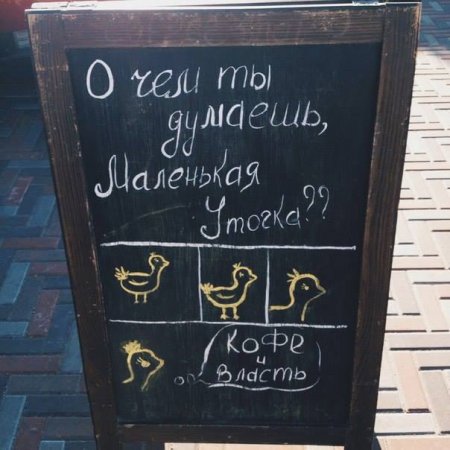 О чем ты
думаешь,
Маленькая
Уточка??
Кофе
и
Власть